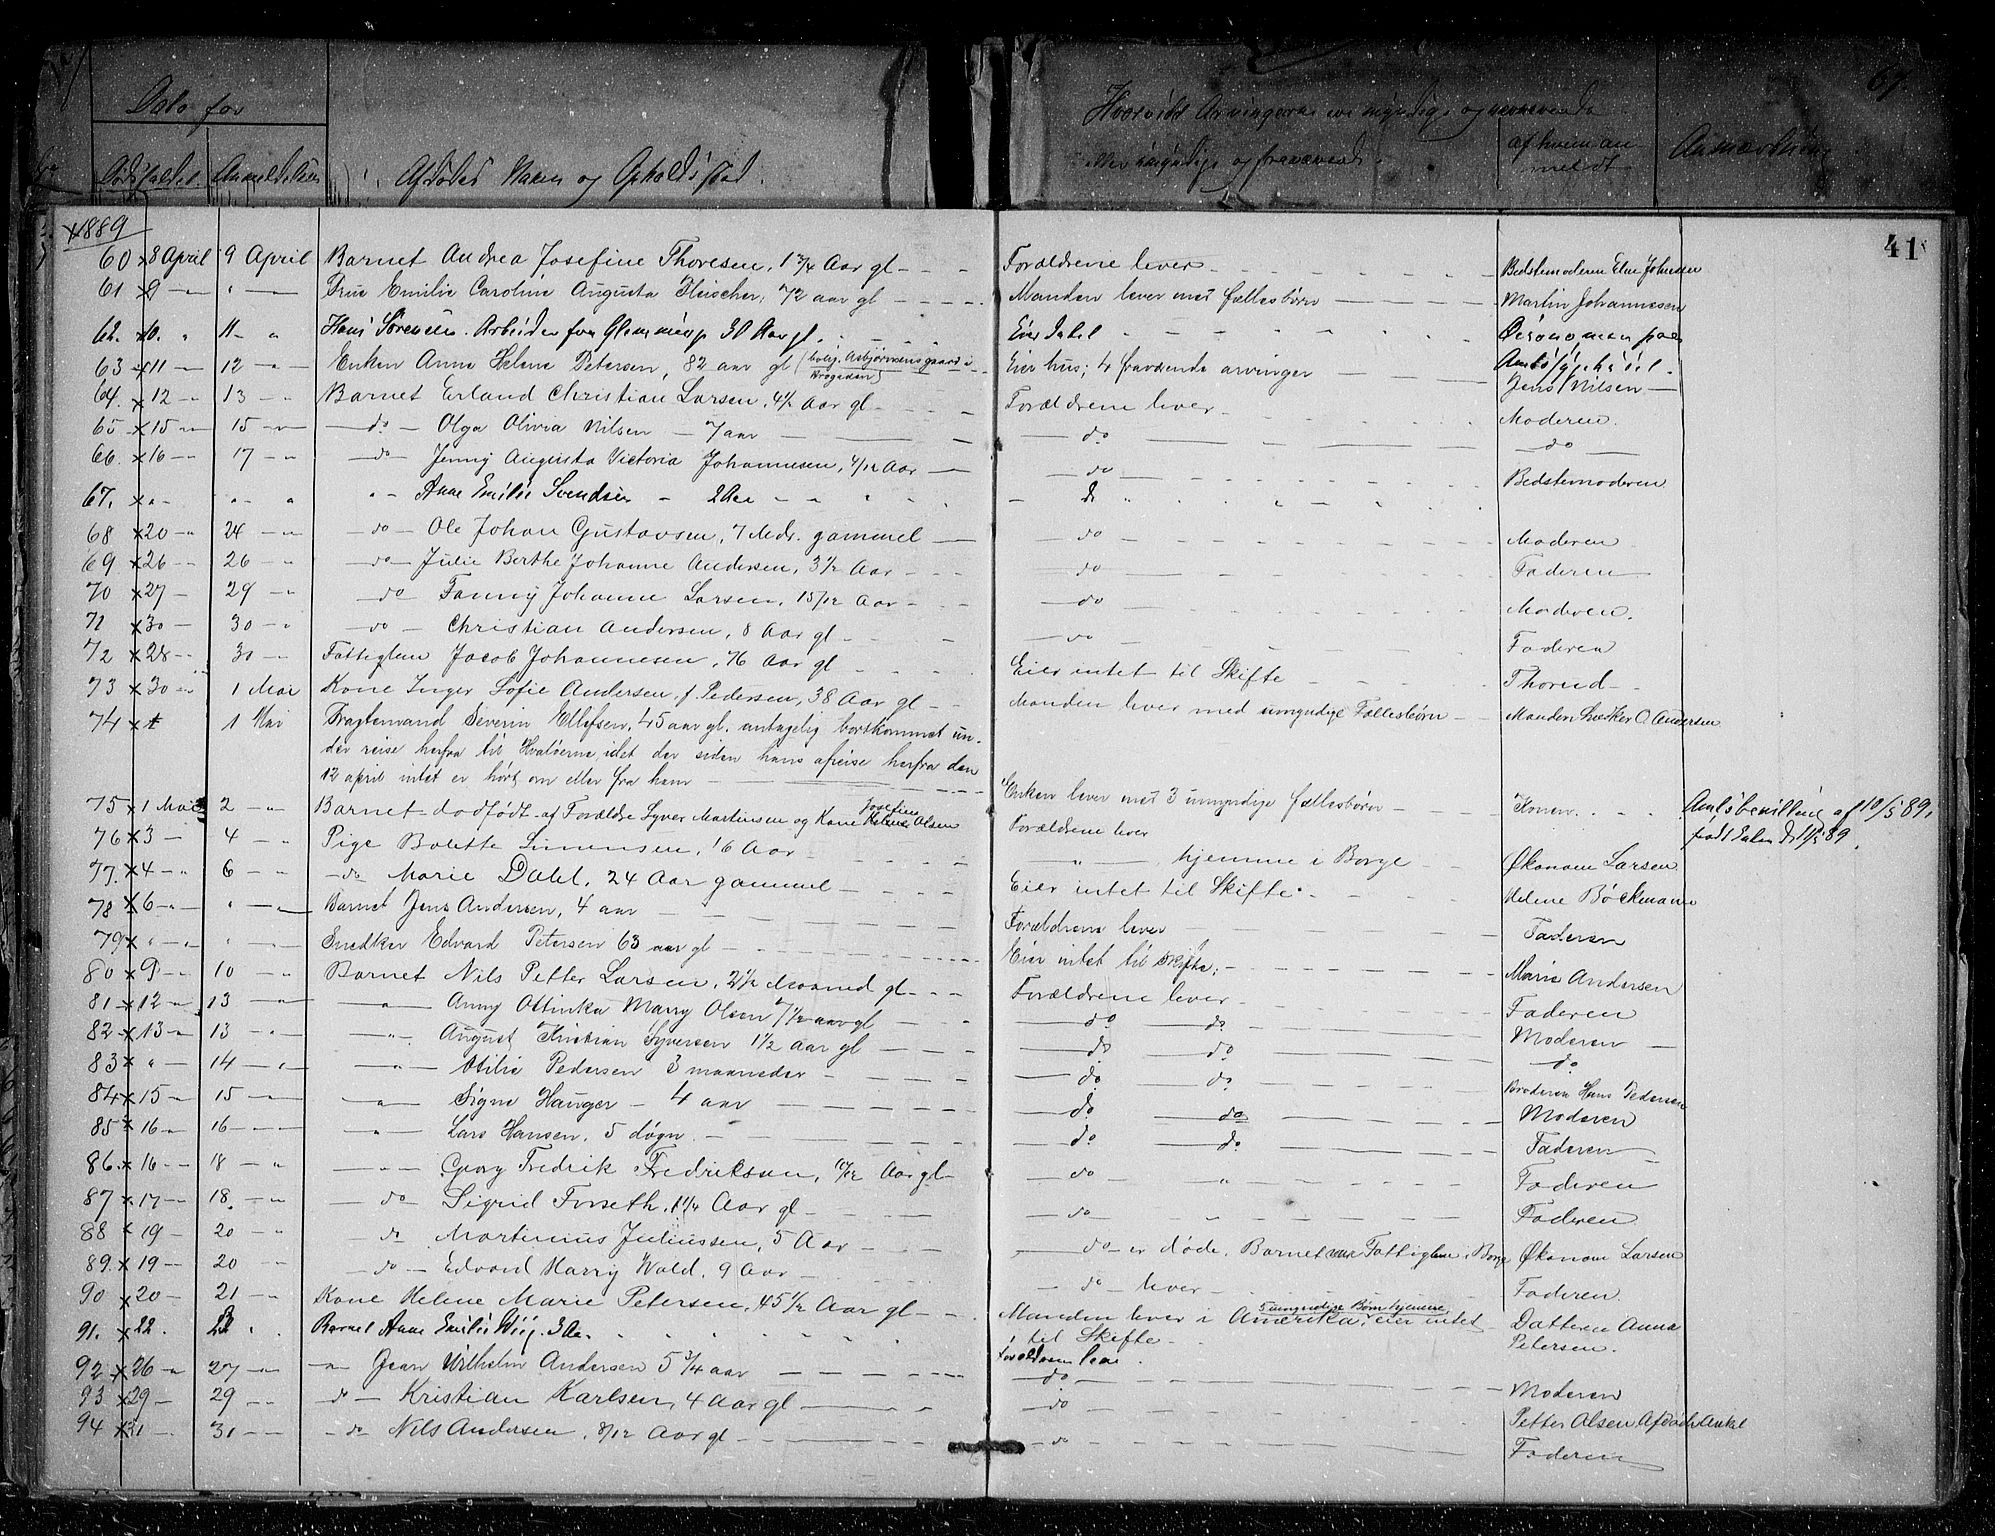 Dato for
Dødsfaldet. Anmeldelsen
Afdødes Navn og Opholdsstad.
Hvorvidt Arvingerne ere myndige og nærværende
eller umyndige og fraværende.
af hvem an-
meldt
Anmærkning
67.
41
1889
60 x 8 April 9 April Barnet Andrea Josefine Thoresen, 1 3/4 Aar gl - - - Forældrene lever - - - Bedstemoderen Elne Johnsen
61 x 9 — " — Frue Emilie Caroline Augusta Fleischer, 72 aar gl - - - Manden lever med fællesbørn - - - Martin Johannesen
62. x 10. " 11 - " Hans Sørensen. Arbeider fra Glemminge 30 Aar gl. Eier Intet - - - Øconomen paa
63 x 11 — 12 - " - Enken Anne Helene Petersen, 82 aar gl (bolig. Asbjørnsensgaard i Eier hus; 4 fraværende arvinger - - - Amtssygehuset -
Brogaden)
64. x 12 — " 13 - " Barnet Erland Christian Larsen, 4 1/2 Aar gl - - - Forældrene lever - - - Jens Nilsen —
65 x 15 — " 15 — " — do — Olga Olivia Nilsen — 7 aar — do — Moderen.
66. x 16 — " 17 - " — do — Jenny Augusta Victoria Johannesen, 4/12 Aar — do — do —
67. x " - " - " " - Anne Emilie Svendsen - 2 Aar - " - do " Bedstemoderen
68 x 20 — " 24 — " — do — Ole Johan Gustavsen, 7 Mdr. gammel — do — Moderen
69 x 26 — " 26 - " — do — Julie Berthe Johanne Andersen, 3 1/2 Aar - - - do — Faderen
70 x 27 — 29 - " — do — Fanny Johanne Larsen, 15/12 Aar - - - do — Moderen.
71 x 30 — 30 - " — do — Christian Andersen, 8 Aar gl - - - do — Faderen
72 x 28 - " 30 - " Fattiglem Jacob Johannesen, 76 Aar gl - - - Eier intet til Skifte - - - Thorud -
73 x 30 - " 1 Mai Kone Inger Sofie Andersen, f. Pedersen, 38 Aar gl - - Manden lever med umyndige Fællesbørn - Manden Snedker O. Andersen
74 x 1 Mai Fragtemand Severin Ellefsen, 45 aar gl, antagelig bortkommet un-
der reise herfra til Hvaløerne, idet der siden hans afreise herfra den
12 april intet er hørt om eller fra ham — Enken lever med 3 umyndige fællesbørn - - Konen. Amtsbevilling af 10/5 89,
75 x 1 Mai 2 — " Barnet dødfødt af Forældre Syver Martinsen og Kone Josefine Helene Olsen Forældrene lever
76 x 3 — 4 - " Pige Bolette Simensen, 16 Aar - - - " — hjemme i Borge - - Økonom Larsen
77. x 4 — " 6 - " — do Marie Dahl, 24 Aar gammel - - - Eier intet til Skifte. - - - Helene Bøckmann
78 x 6 - " - " - " — Barnet Jens Andersen, 4 aar - - - Forældrene lever - - - Faderen
79 x " - " " - " Snedker Edvard Petersen 63 aar gl - - - Eier intet til skifte; - - - Marie Andersen
80 x 9 - " 10 - " Barnet Nils Petter Larsen, 2 1/2 Maaned gl - - - Forældrene lever - - - Faderen
81 x 12 - " 13 - " — " — Anny Ottinka Marry Olsen 7 1/2 aar gl - - - do — do — Moderen —
82 x 13 - " 13 - " — " — August Kristian Syversen 1 1/2 Aar gl - - - do — do — do —
83 x " — 14 - " — " — Otilie Pedersen 3 maaneder - - - do — do — Broderen Hans Pedersen
84 x 15 — " 15 - " — " — Signe Hauger - 4 aar - - - do — do — Moderen
85 x 16 - " 16 - " — " — Lars Hansen, 5 døgn. - - - do — do — Faderen
86. x 16 - " 18 - " — " — Georg Fredrik Fredriksen, 10/12 Aar gl - do " Faderen
87 x 17 - " 18. - " — do — Sigrid Forseth, 1 1/4 Aar gl - - - do " Faderen.
88 x 19 — 20 - " — do Martinius Juliussen, 5 Aar - - - do - er døde. Barnet var Fattiglem i Borge Økonom Larsen
89. x 19 - " 20 - " — do — Edvard Harry Wold, 9 Aar - - - do — lever - - - Faderen.
90 x 20 — 21 - " Kone Helene Marie Petersen, 45 1/2 Aar gl - - Manden lever i Amerika, 5 umyndige Børn hjemme, eier intet Datteren Anna
til Skifte - Petersen.
91. x 22. 23 . Barnet Anne Emilie Wiig. 3 Aar. Forældrene leve.
92 x 26 - " 27 - " — " — Jean Wilhelm Andersen 5 3/4 aar - - - do — Moderen
93 x 29 — 29 - " do — Kristian Karlsen, 4 Aar gl — do — Petter Olsen Afdødes Onkel
94 x 31 - " 31 - " — do — Nils Andersen, 8/12 Aar gl - - - do Faderen